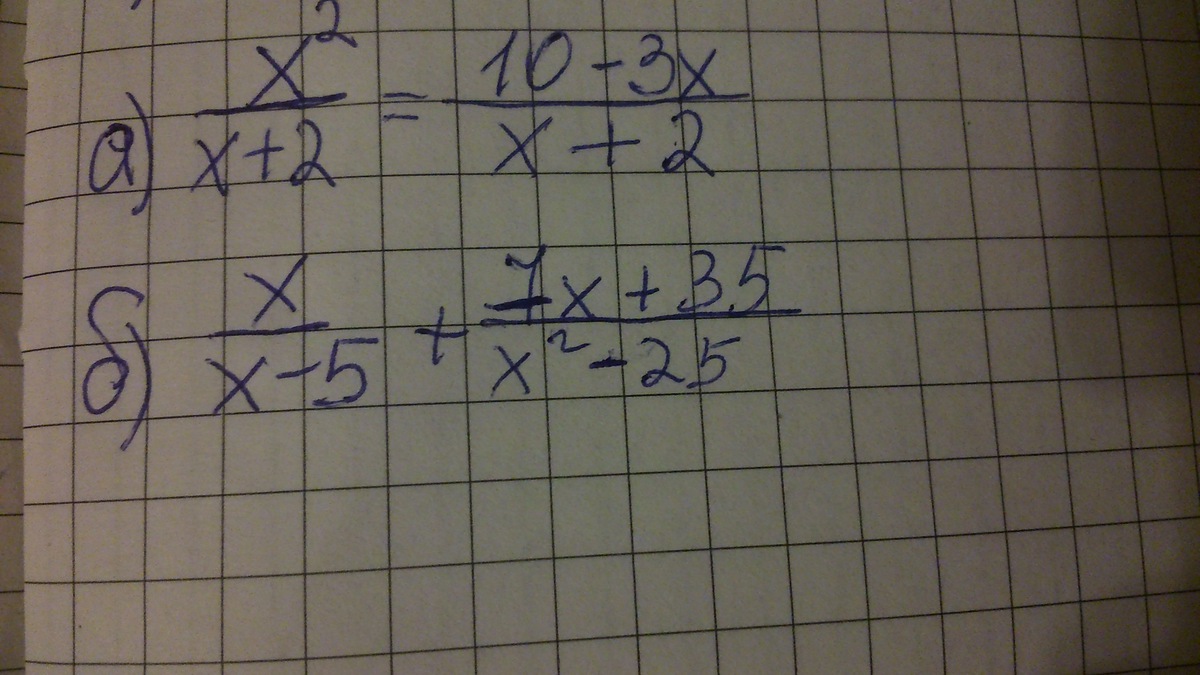 а) x²/(x+2) = (10-3x)/(x+2)
б) x/(x-5) + (7x+35)/(x²-25)